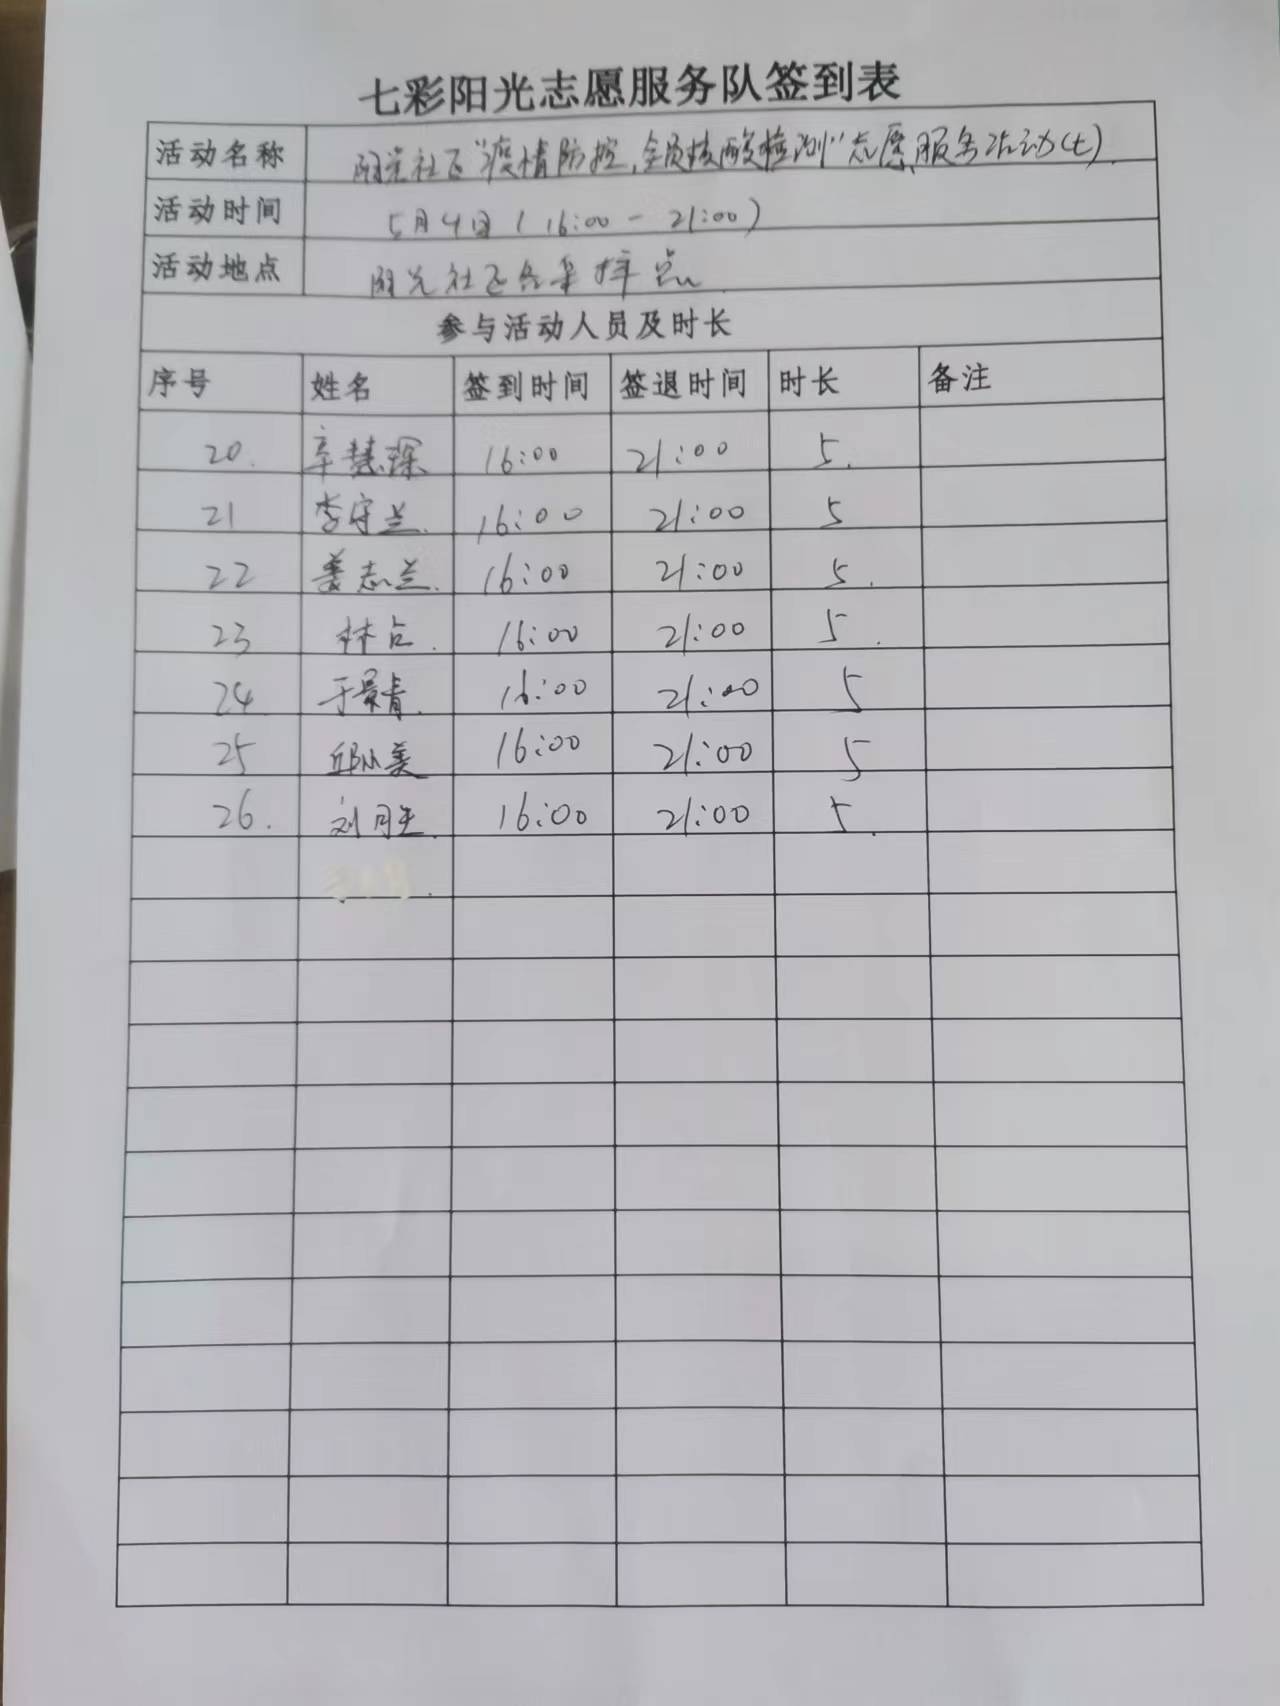 七彩阳光志愿服务队签到表
活动名称 阳光社区“疫情防控,全员核酸检测”志愿服务活动(七)
活动时间 5月4日(16:00-21:00)
活动地点 阳光社区各采样点
参与活动人员及时长
序号 姓名 签到时间 签退时间 时长 备注
20. 辛慧琛 16:00 21:00 5.
21 李守兰. 16:00 21:00 5
22 姜志兰. 16:00 21:00 5.
23 林 . 16:00 21:00 5.
24 于景青. 16:00 21:00 5
25 邱 美 16:00 21:00 5
26. 刘月 . 16:00 21:00 5.